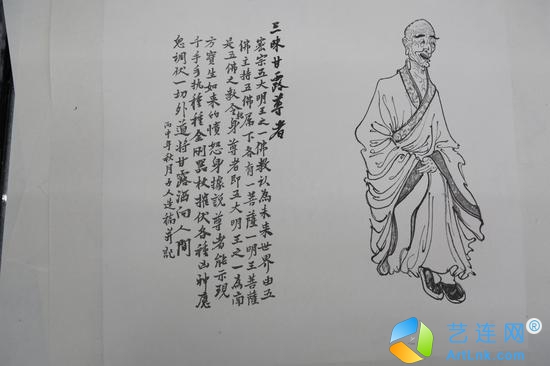 三昧甘露尊者
密宗五大明王之一佛教认為未来世界由五
佛主持五佛属下各有一菩薩一明王菩薩
是五佛之教令身尊者即五大明王之一為南
方寶生如来的憤怒身據説尊者能示現
千手手执種種金刚器杖摧伏各種凶神
调伏一切外道将甘露洒向人間
年秋月于大连稿并記
艺连网